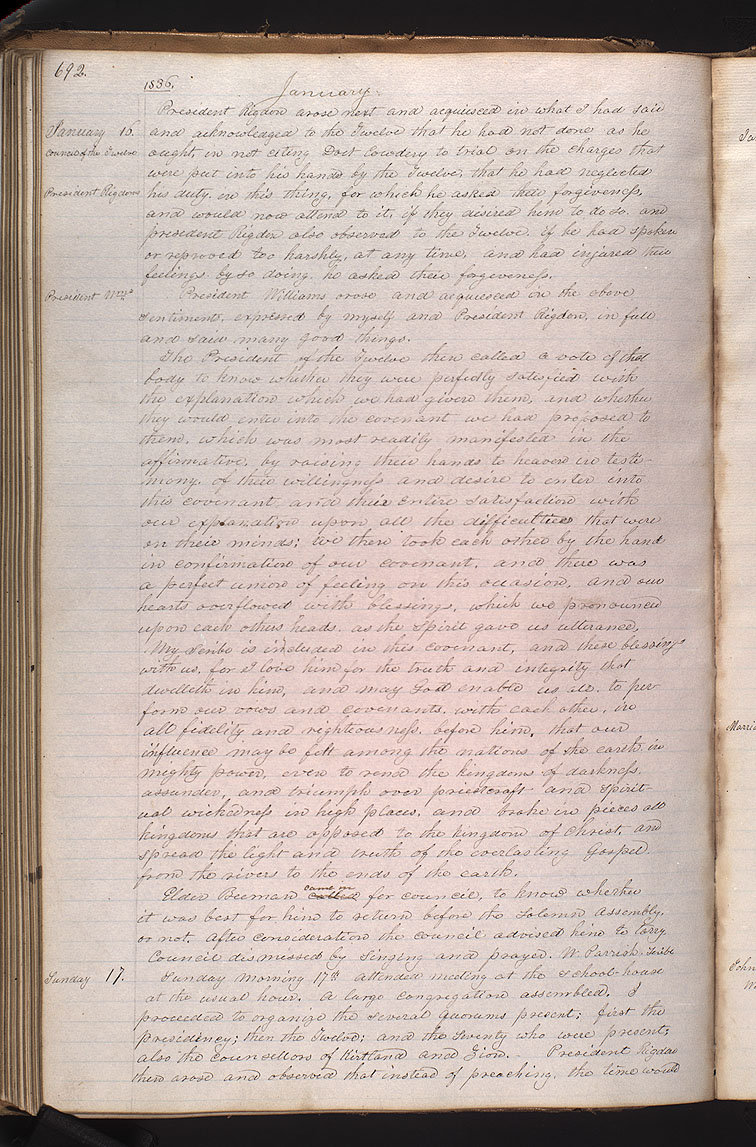 692.
1836.
January.
President Rigdon arose next and acquiesced in what I had said
January 16. and acknowledged to the Twelve that he had not done as he
Council of the Twelve ought, in not citing Doct Cowdery to trial on the charges that
were put into his hands by the Twelve, that he had neglected
President Rigdons his duty in this thing, for which he asked their forgiveness,
and would now attend to it, if they desired him to do so. and
president Rigdon also observed to the Twelve if he had spoken
or reproved too harshly, at any time, and had injured their
feelings by so doing he asked their forgeveness.
President Wms. President Williams arose and acquiesced in the above
sentiments, expressed by myself and President Rigdon, in full
and said many good things.
The President of the Twelve then called a vote of that
body to know whether they were perfectly satisfied with
the explanation which we had given them, and whether
they would enter into the covenant we had proposed to
them, which was most readily manifested in the
affirmative, by raising their hands to heaven in testi-
mony, of their willingness and desire to enter into
this covenant and their entire satisfaction with
our explanation upon all the difficulties that were
on their minds; we then took each other by the hand
in confirmation of our covenant, and there was
a perfect union of feeling on this occasion, and our
hearts overflowed with blessings, which we pronounced
upon each others heads, as the Spirit gave us utterance,
My Scribe is included in this covenant, and these blessings
with us, for I love him for the truth and integrity that
dwelleth in him, and may God enable us all, to per-
form our vows and covenants, with each other, in
all fidelity and righteousness, before him, that our
influence may be felt among the nations of the earth in
mighty power, even to rend the kingdoms of darkness,
assunder, and triumph over priestcraft and spirit-
ual wickedness in high places, and brake in pieces all
kingdoms that are opposed to the kingdom of Christ, and
spread the light and truth of the everlasting Gospel
from the rivers to the ends of the earth.
came in
Elder Beeman called for council, to know whether
it was best for him to return before the Solemn Assembly,
or not. After consideration the council advised him to tarry
Council dismissed by Singing and prayer. W. Parrish Scribe
Sunday 17. Sunday Morning 17th attended meeting at the School-house
at the usual hour. A large congregation assembled. I
proceeded to organize the several Quorums present; first the
presidency; then the Twelve; and the Seventy who were present;
also the counsellors of Kirtland and Zion. President Rigdon
then arose and observed that instead of preaching, the time would